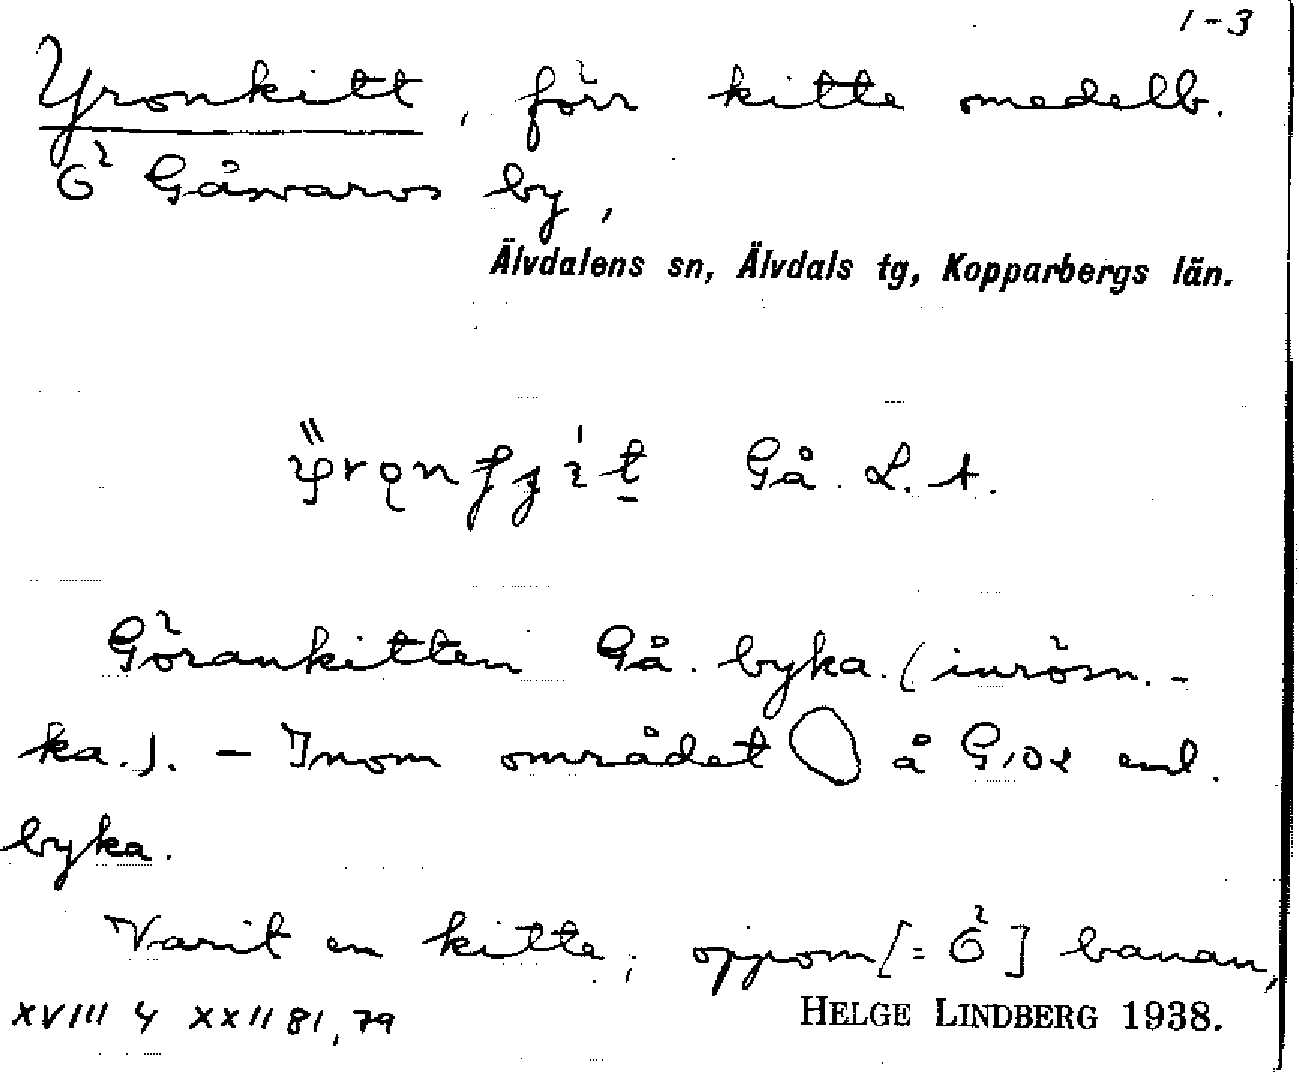 1-3
Yronkitt, förr kitte omedelb.
Ö Gåsvarvs by,
Älvdalens sn, Älvdals tg, Kopparbergs län.
Gå. L. A.
Görankitten Gå. byka. (inrösn.-
ka.). - Inom området å G, enl.
byka.
Varit en kitte, oppom [= Ö] banan,
XVIII 4 XXII 81, 79
HELGE LINDBERG 1938.